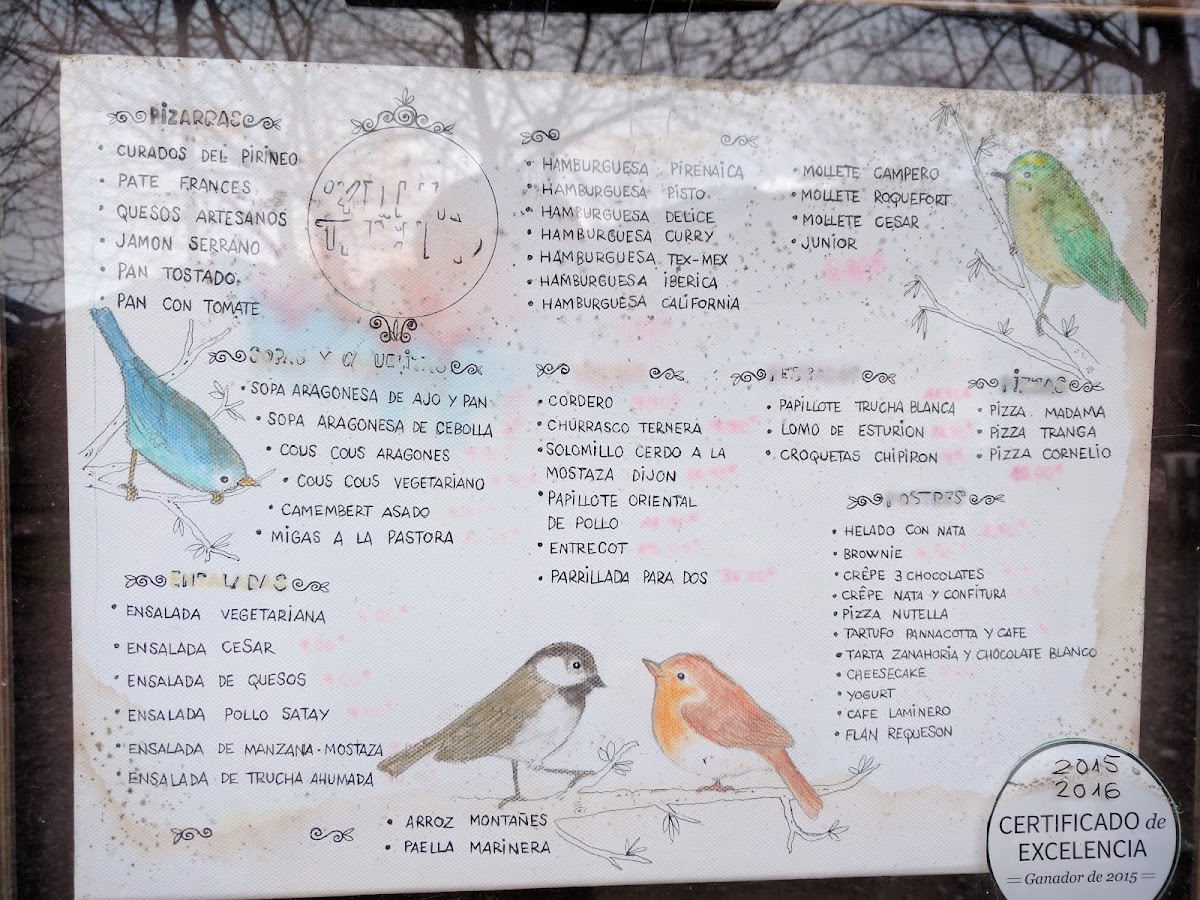 PIZARRAS
• CURADOS DEL PIRINEO
• PATE FRANCES
• QUESOS ARTESANOS
• JAMON SERRANO
• PAN TOSTADO
• PAN CON TOMATE
• HAMBURGUESA PIRENAICA
• HAMBURGUESA PISTO
• HAMBURGUESA DELICE
• HAMBURGUESA CURRY
• HAMBURGUESA TEX-MEX
• HAMBURGUESA IBERICA
• HAMBURGUESA CALIFORNIA
• MOLLETE CAMPERO
• MOLLETE ROQUEFORT
• MOLLETE CESAR
• JUNIOR
• SOPA ARAGONESA DE AJO Y PAN
• SOPA ARAGONESA DE CEBOLLA
• COUS COUS ARAGONES
• COUS COUS VEGETARIANO
• CAMEMBERT ASADO
• MIGAS A LA PASTORA
ENSALADAS
• ENSALADA VEGETARIANA
• ENSALADA CESAR
• ENSALADA DE QUESOS
• ENSALADA POLLO SATAY
• ENSALADA DE MANZANA-MOSTAZA
• ENSALADA DE TRUCHA AHUMADA
• CORDERO
• CHURRASCO TERNERA
• SOLOMILLO CERDO A LA
MOSTAZA DIJON
• PAPILLOTE ORIENTAL
DE POLLO
• ENTRECOT
• PARRILLADA PARA DOS
• PAPILLOTE TRUCHA BLANCA
• LOMO DE ESTURION
• CROQUETAS CHIPIRON
PIZZAS
• PIZZA MADAMA
• PIZZA TRANGA
• PIZZA CORNELIO
POSTRES
• HELADO CON NATA
• BROWNIE
• CRÊPE 3 CHOCOLATES
• CRÊPE NATA Y CONFITURA
• PIZZA NUTELLA
• TARTUFO PANNACOTTA Y CAFE
• TARTA ZANAHORIA Y CHOCOLATE BLANCO
• CHEESECAKE
• YOGURT
• CAFE LAMINERO
• FLAN REQUESON
• ARROZ MONTAÑES
• PAELLA MARINERA
2015
2016
CERTIFICADO de
EXCELENCIA
Ganador de 2015